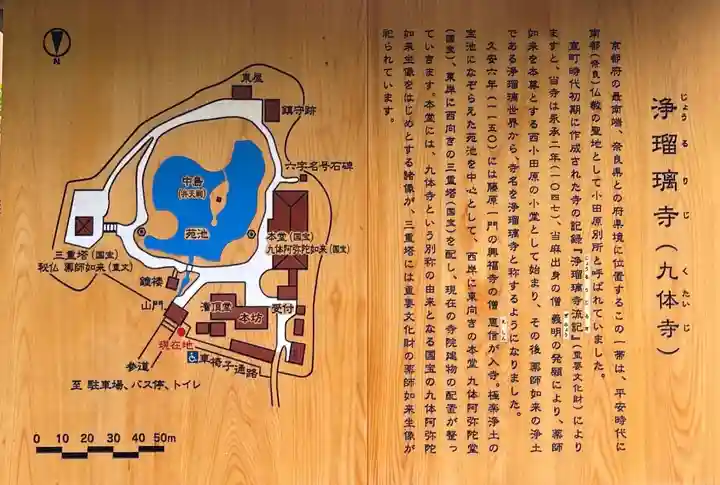 浄瑠璃寺（九体寺）
じょうるりじ
くたいじ
京都府の最南端、奈良県との府県境に位置するこの一帯は、平安時代に
南都（奈良）仏教の聖地として小田原別所と呼ばれていました。
室町時代初期に作成された寺の記録『浄瑠璃寺流記』（重要文化財）により
じょうるりじるき
ますと、当寺は永承二年（一〇四七）、当麻出身の僧 義明の発願により、薬師
ぎみょう
如来を本尊とする西小田原の小堂として始まり、その後薬師如来の浄土
である浄瑠璃世界から、寺名を浄瑠璃寺と称するようになりました。
久安六年（一一五〇）には藤原一門の興福寺の僧 恵信が入寺。極楽浄土の
えしん
宝池になぞらえた苑池を中心として、西岸に東向きの本堂 九体阿弥陀堂
（国宝）、東岸に西向きの三重塔（国宝）を配し、現在の寺院建物の配置が整っ
ています。本堂には、九体寺という別称の由来となる国宝の九体阿弥陀
如来坐像をはじめとする諸像が、三重塔には重要文化財の薬師如来坐像が
祀られています。
N
東屋
鎮守跡
六字名号石碑
中島
（弁天祠）
苑池
本堂（国宝）
九体阿弥陀如来（国宝）
三重塔（国宝）
秘仏 薬師如来（重文）
鐘楼
山門
潅頂堂
本坊
受付
現在地
参道
車椅子通路
至 駐車場、バス停、トイレ
0 10 20 30 40 50m